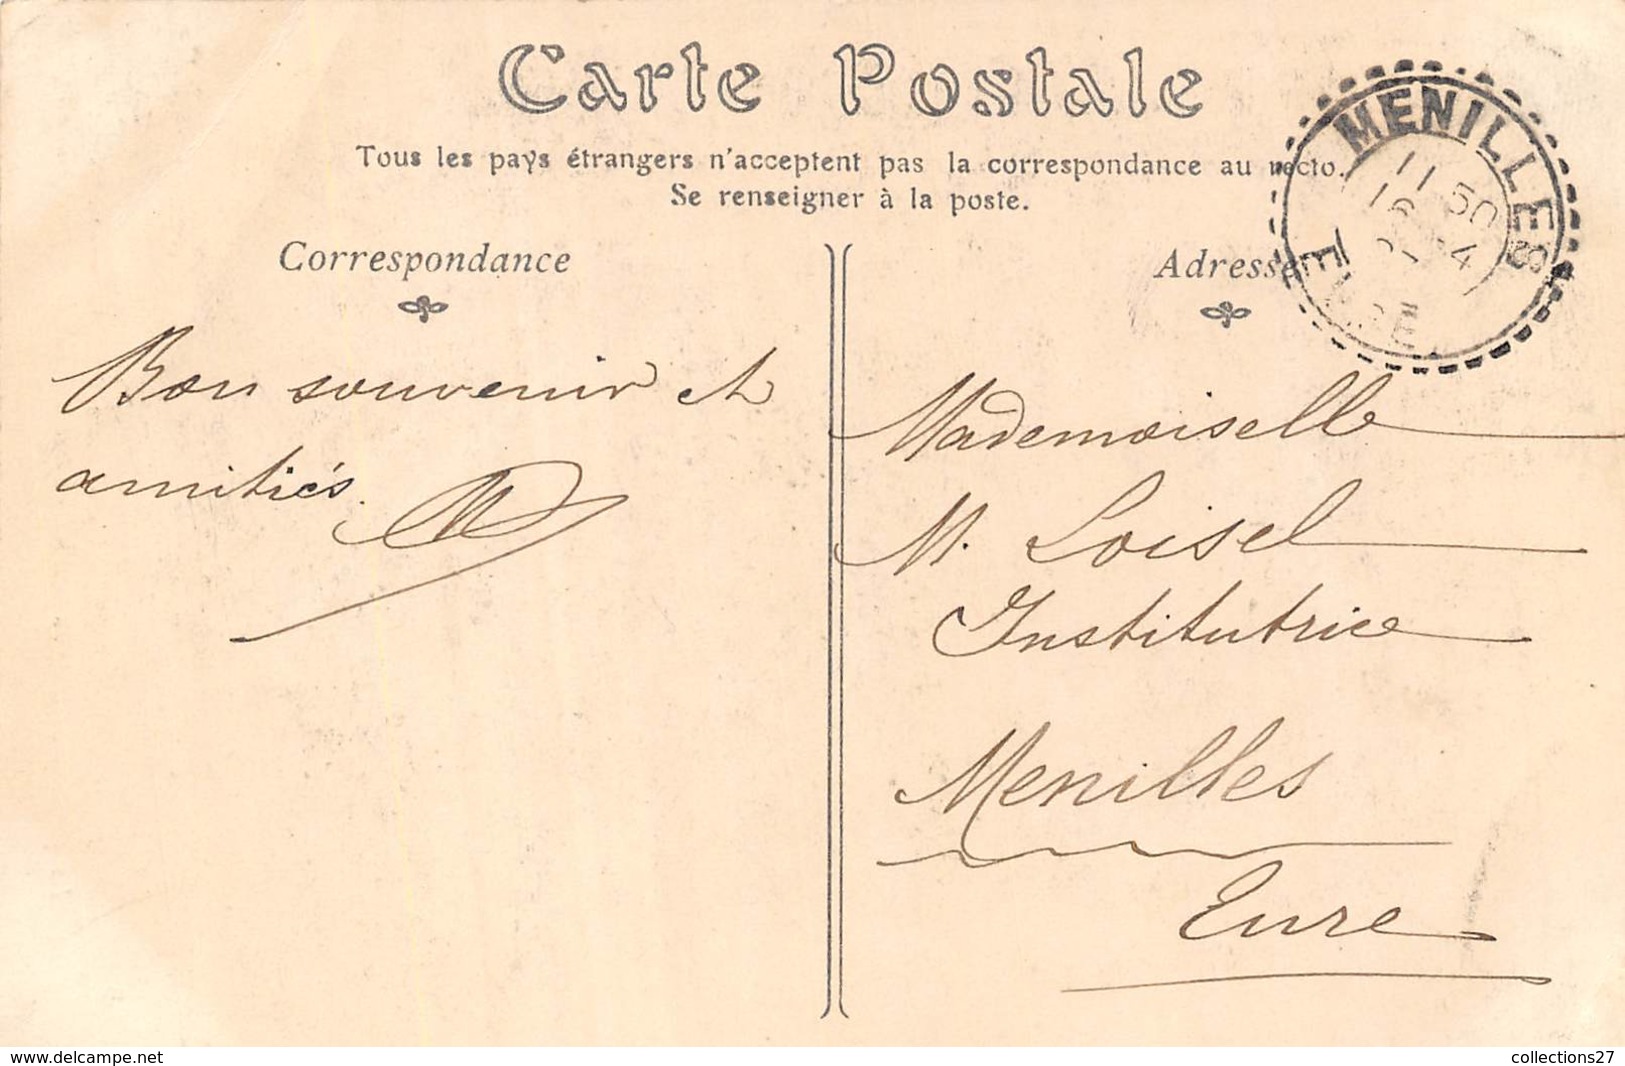 Carte Postale
Tous les pays étrangers n'acceptent pas la correspondance au recto.
Se renseigner à la poste.
Correspondance
Adresse
MENILLES
11 50
16
4
EURE
Bon souvenir et
amitiés.
Mademoiselle
M. Loisel
Institutrice
Menilles
Eure
www.delcampe.net
collections27